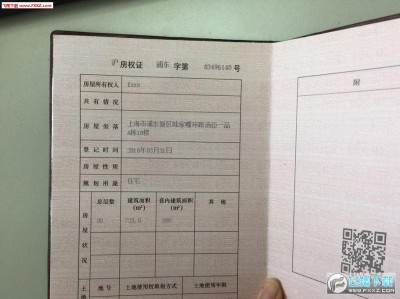 飞翔下载 WWW.PXXZ.COM
沪 房权证 浦东 字第 43496140 号
房屋所有权人 fxxx
共有情况
房屋坐落 上海市浦东新区陆家嘴环路汤臣一品
A栋10楼
登记时间 2016年05月31日
房屋性质
规划用途 住宅
房屋状况
总层数 建筑面积 套内建筑面积 其他
(m²) (m²)
土地
地号 土地使用权取得方式 土地使用年限
附